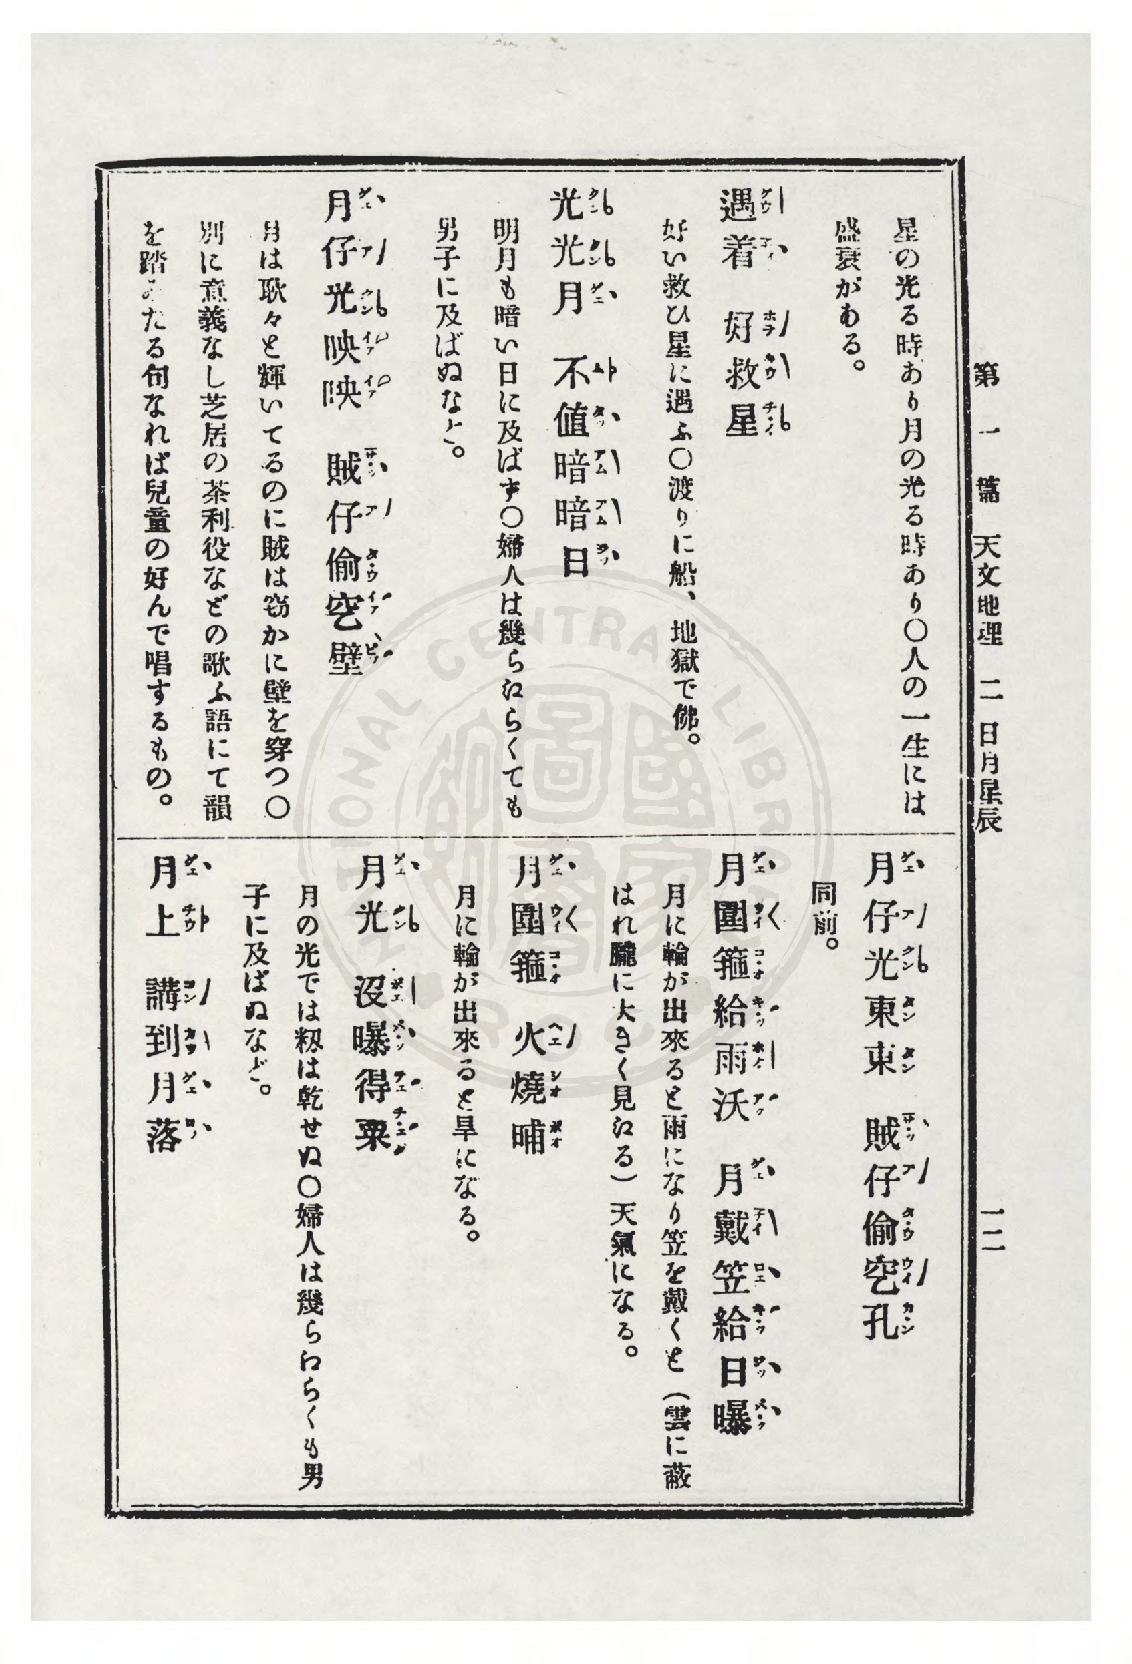 第一篇 天文地理 二 日月星辰 一二
星の光る時あり月の光る時あり〇人の一生には
盛衰がある。
遇着 好救星
好い救ひ星に遇ふ〇渡りに船、地獄で佛。
光光月 不值暗暗日
明月も暗い日に及ばず〇婦人は幾らえらくても
男子に及ばぬなど。
月仔光映映 賊仔偷空壁
月は耿々と輝いてるのに賊は窃かに壁を穿つ〇
別に意義なし芝居の茶利役などの歌ふ語にて韻
を踏みたる句なれば兒童の好んで唱するもの。
月仔光東東 賊仔偷空孔
同前。
月圍箍給雨沃 月戴笠給日曝
月に輪が出來ると雨になり笠を戴くと（雲に蔽
はれ朧に大きく見える）天氣になる。
月圍箍 火燒晡
月に輪が出來ると旱になる。
月光 沒曝得粟
月の光では籾は乾せぬ〇婦人は幾らえらくも男
子に及ばぬなど。
月上 講到月落
NATIONAL CENTRAL LIBRARY
R.O.C.